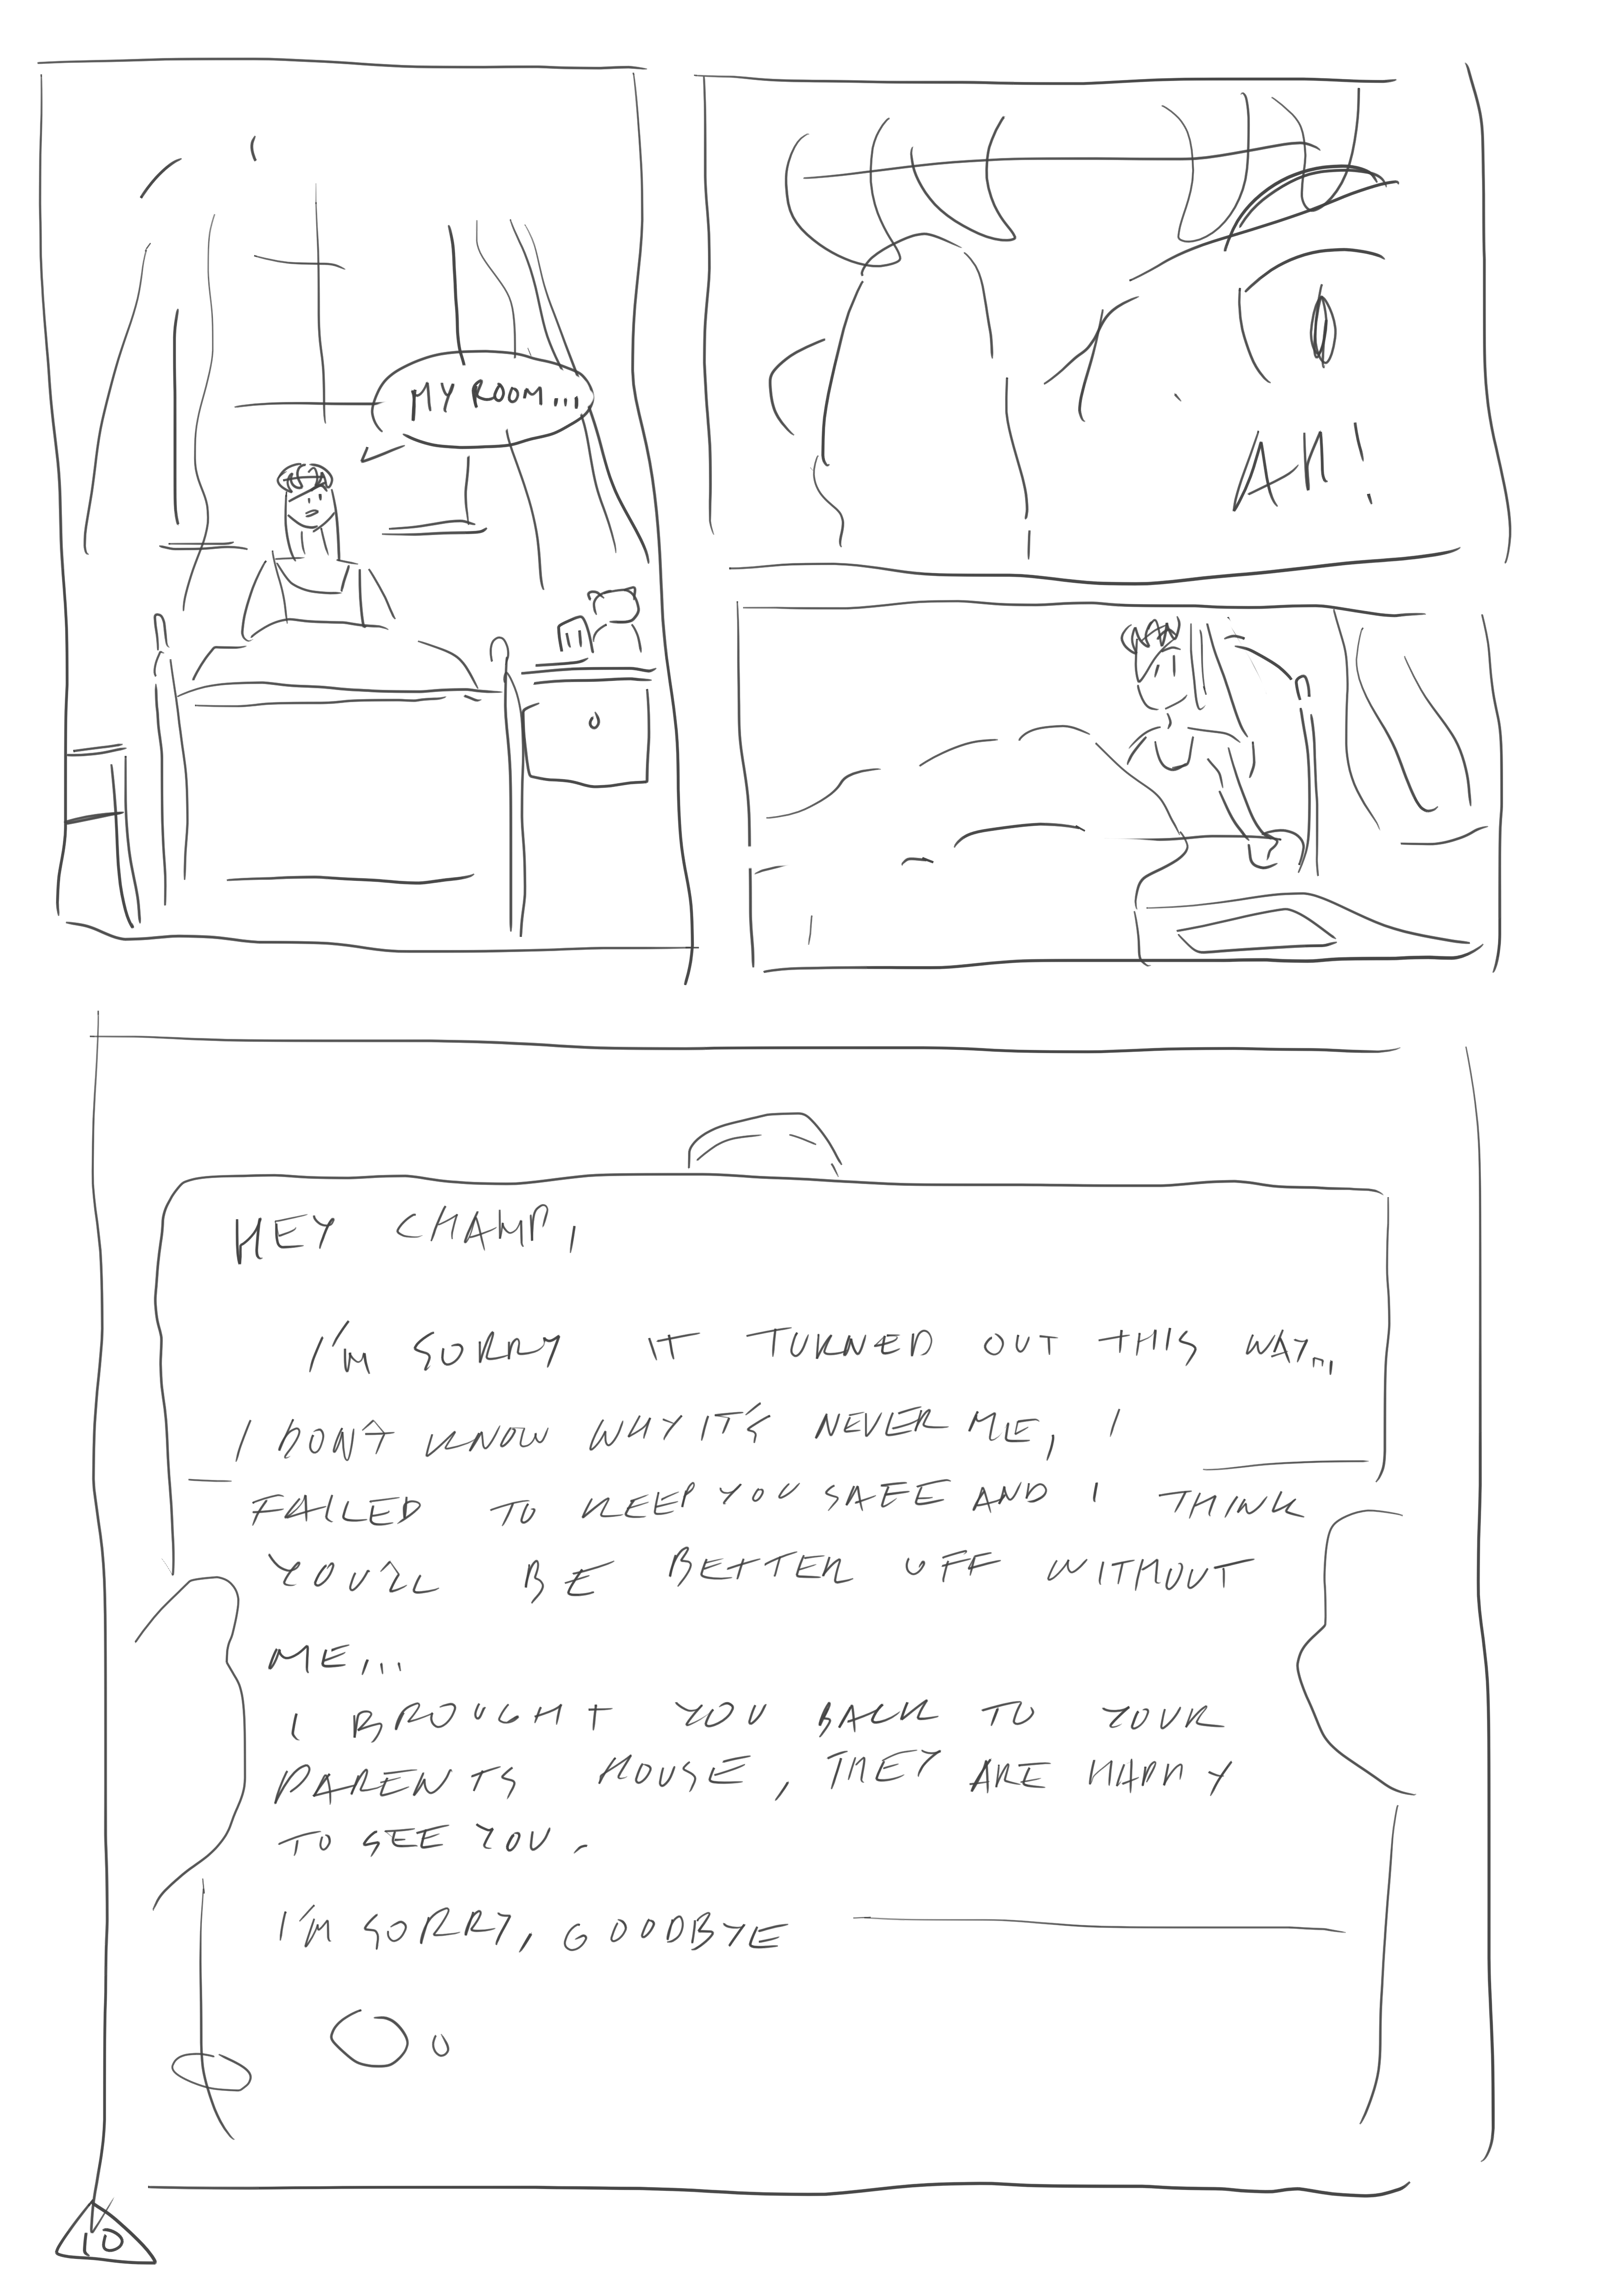 MY ROOM...
AH!
HEY CHAMP,
I'M SORRY IT TURNED OUT THIS WAY...
I DON'T KNOW WHY IT'S NEVER ME, I
FAILED TO KEEP YOU SAFE AND I THINK
YOU'LL BE BETTER OFF WITHOUT
ME...
I BROUGHT YOU BACK TO YOUR
PARENTS HOUSE, THEY ARE HAPPY
TO SEE YOU.
I'M SORRY, GOODBYE
O.
10